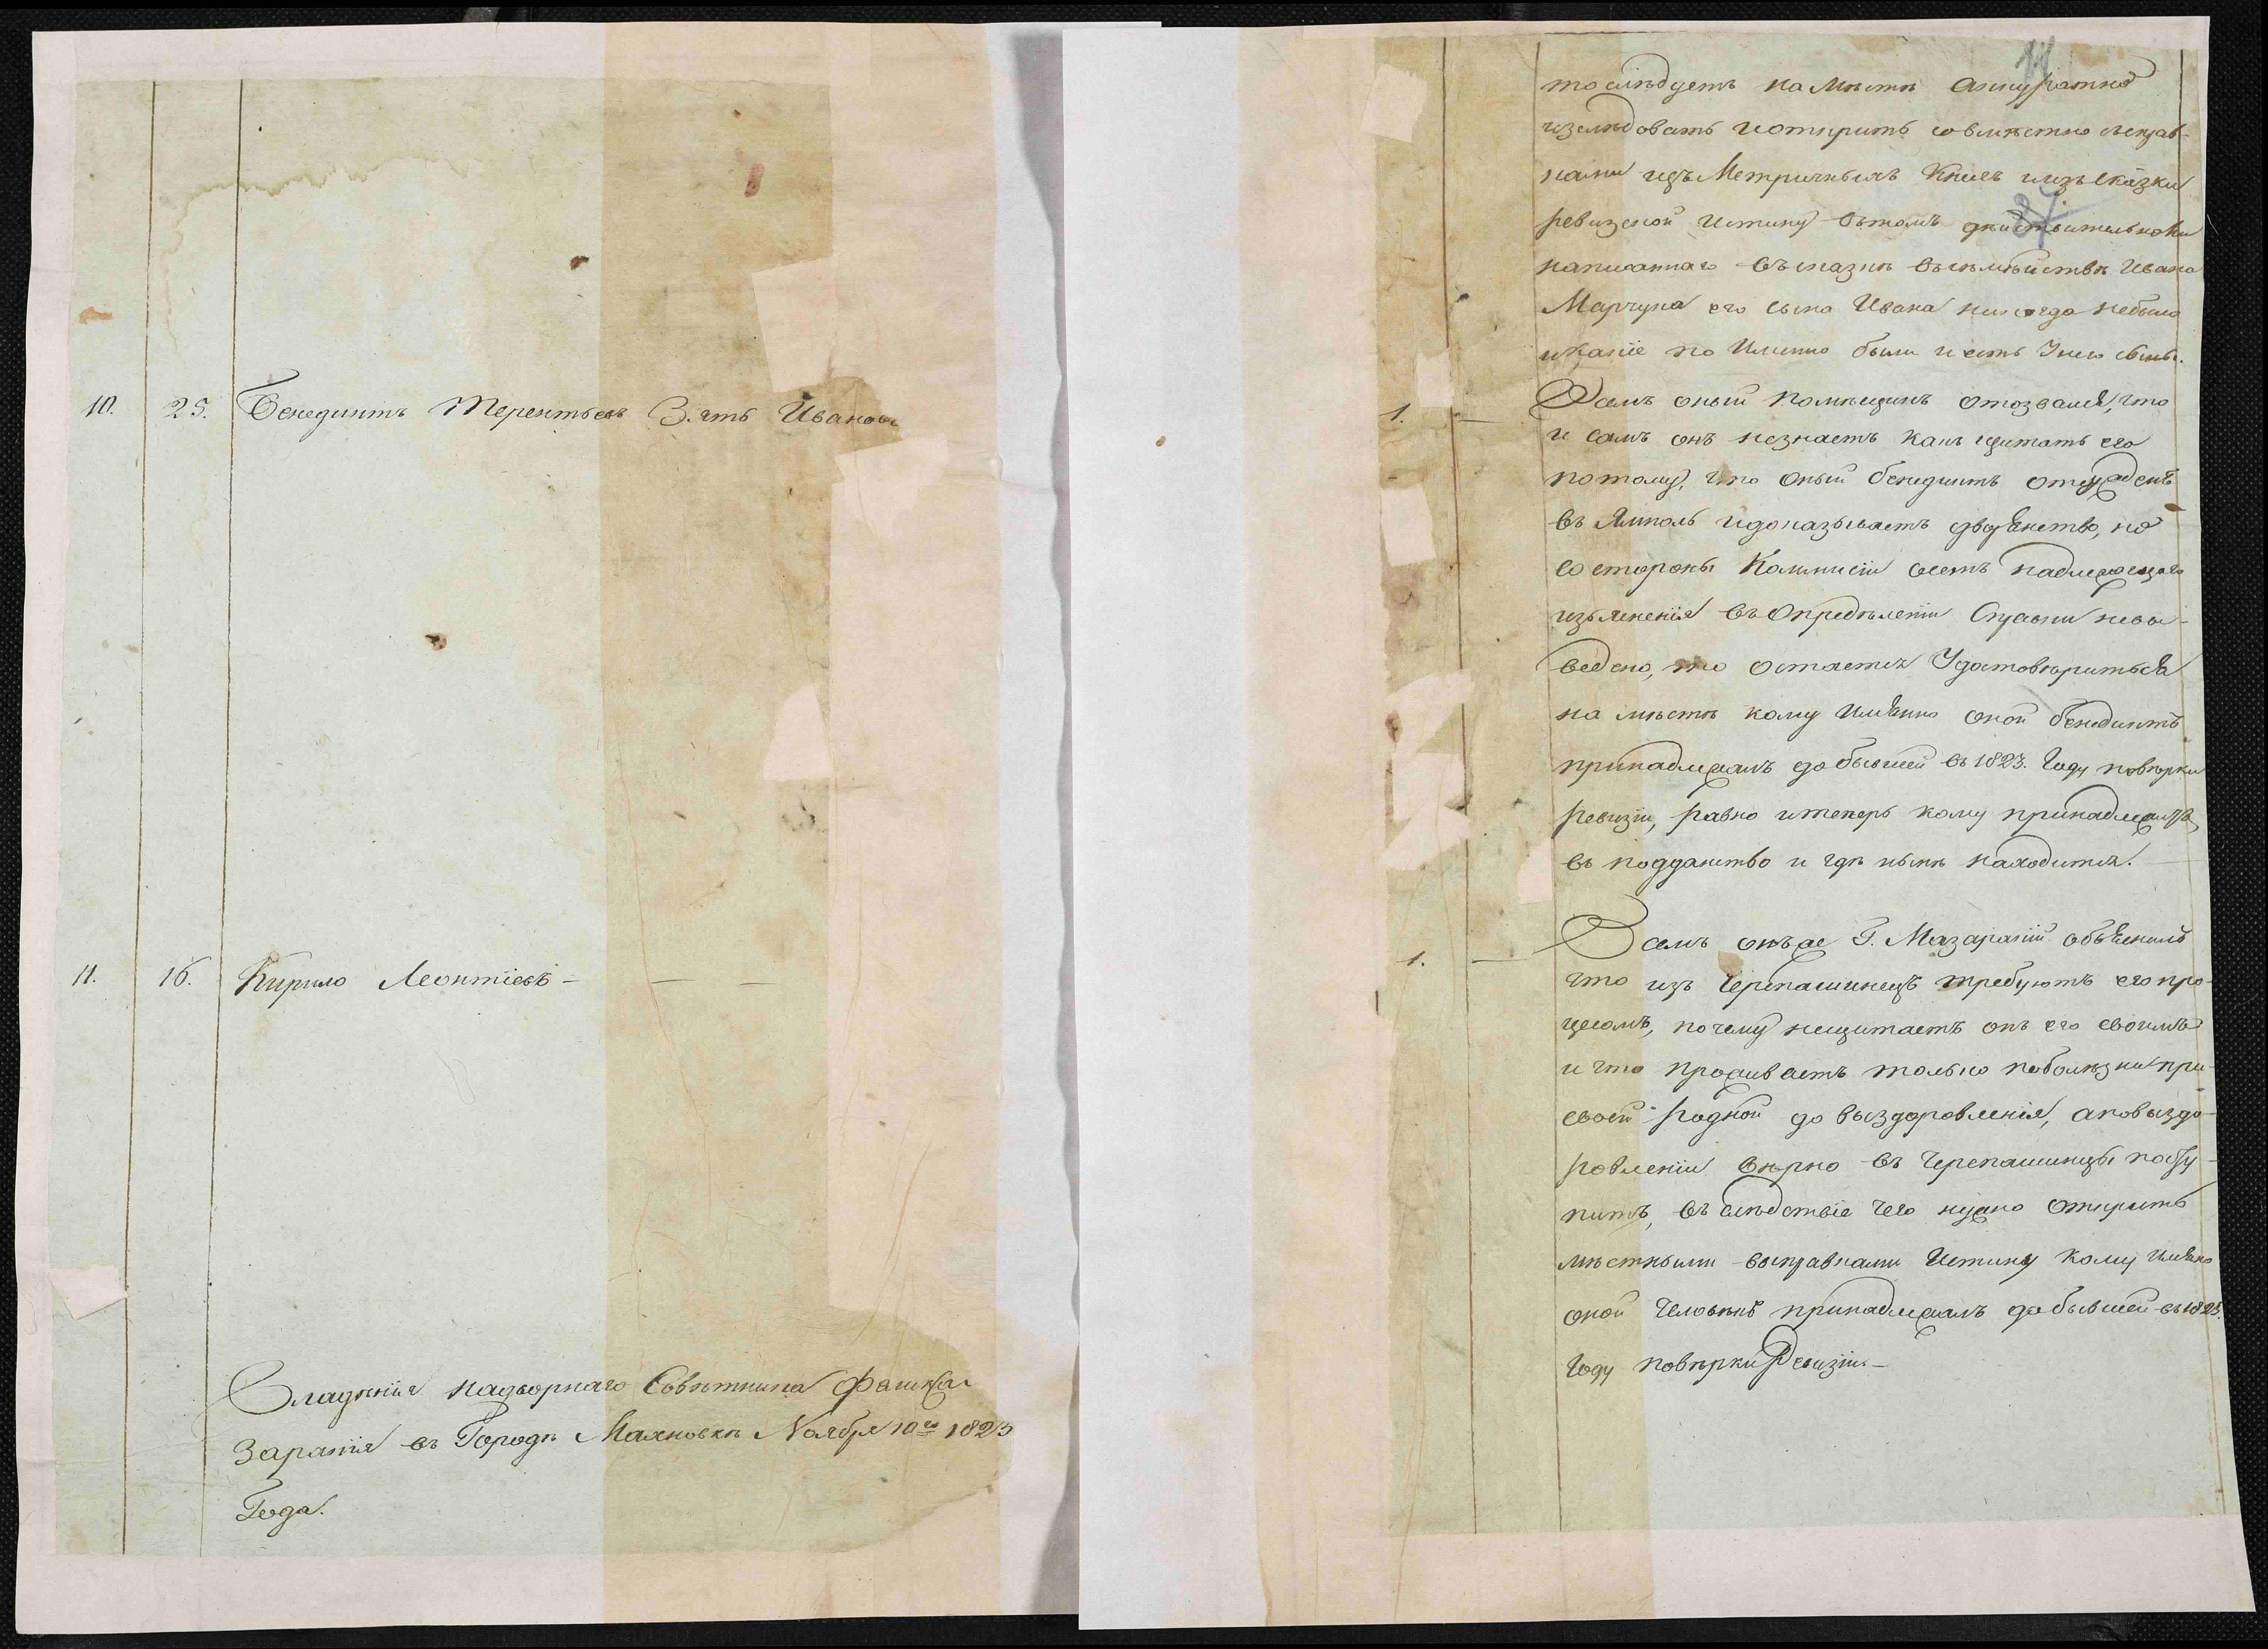 10. 25. Бенедиктъ Терентьевъ Зять Иванов
11. 16. Кирило Леонтіевъ —
Владѣнія надворнаго Совѣтника
Заранія въ Городѣ Махновкѣ Ноября 10го 1823
Года.
то слѣдуетъ на Мѣстѣ Аккуратно
изслѣдовать и открить совмѣстно
изъ Метричныхъ Книгъ и изъ Сказки
ревизской Истину вътомъ действительноли
написаннаго въ сказкѣ въ сѣмѣйствѣ Ивана
Марчука его сына Ивана никогда небыло
икакіе по Имѣнно были и есть Унего сыны.
1. — Оный помѣщикъ отозвался, что
и самъ онъ незнаетъ какъ щитать его
потому, что оный Бенедиктъ
въ Ямполь идоказываетъ дворянство, но
со стороны Коммисіи сему надлежащаго
изъясненія въ Опредѣленіи Справки невы-
ведено, то остается Удостовѣриться
на мѣстѣ кому Имянно оной Бенедиктъ
принадлежалъ до бывшей въ 1823. Году повѣрки
ревизіи, равно итеперь кому принадлежитъ
въ подданство и гдѣ нынѣ находится. —
1. — онъ же Г. Мазаракій объяснилъ
что изъ Черепашинецъ требуютъ его про-
цесомъ, почему нещитаетъ онъ его своимъ
и что проживаетъ только поболѣзни при
своей родной до выздоровленія, а повыздо-
ровленіи вѣрно въ Черепашинцы посту-
питъ, въ слѣдствіе чего нужно открить
мѣстными выправками Истину кому Имянно
оной Человѣкъ принадлежалъ до бывшей въ 1823.
Году повѣрки Ревизіи. —